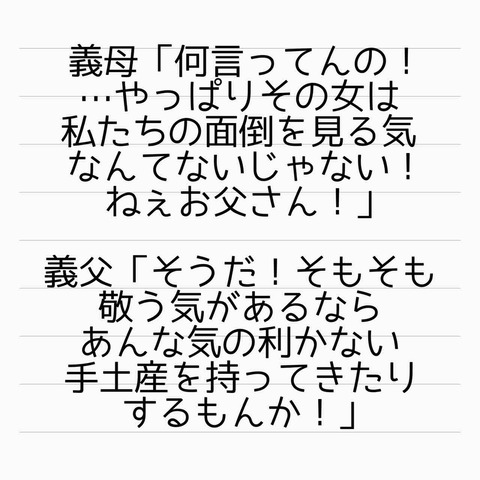 義母「何言ってんの！
…やっぱりその女は
私たちの面倒を見る気
なんてないじゃない！
ねぇお父さん！」
義父「そうだ！そもそも
敬う気があるなら
あんな気の利かない
手土産を持ってきたり
するもんか！」